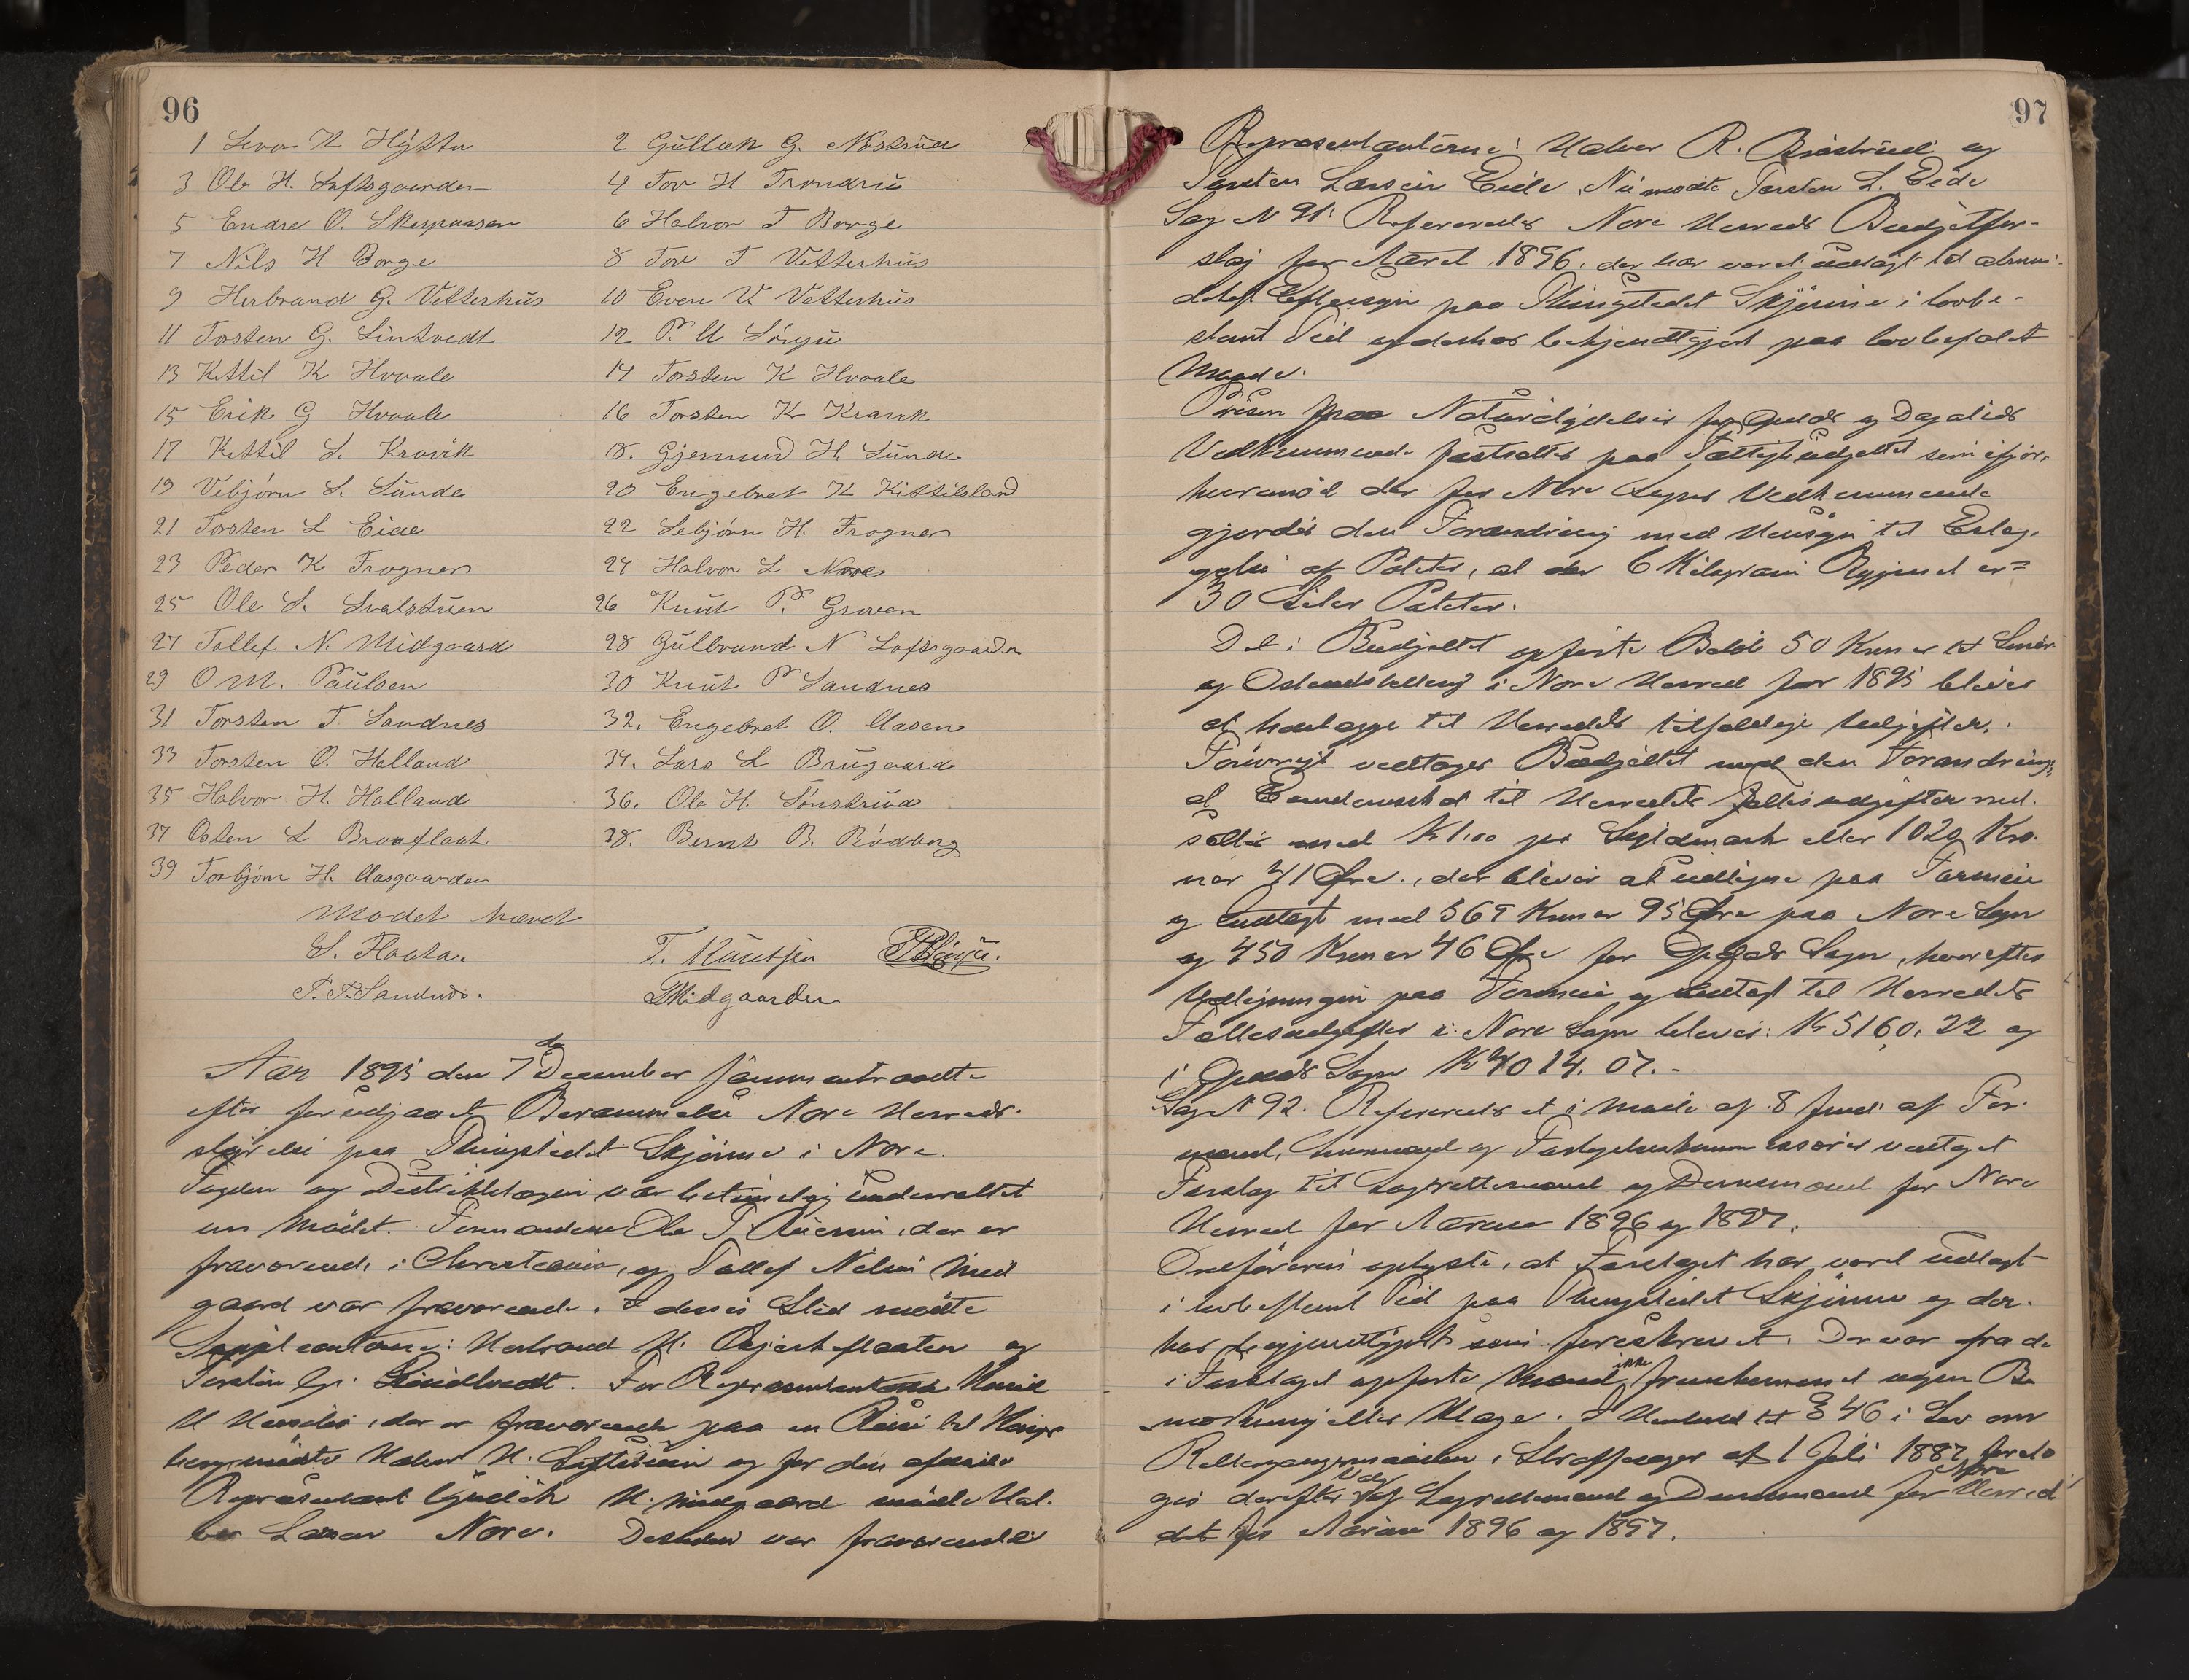 96
1 Levor H Hÿtta 2 Gŭllek G. Nøstrŭd
3 Ole H. Loftsgaarden 4 Tov H Trondrŭ
5 Endre O. Skerpaasen 6 Halvor T Borge
7 Nils H Borge 8 Tov T Vetterhŭs
9 Herbrand G. Vetterhŭs 10 Even V. Vetterhŭs
11 Torsten G. Lintvedt 12 P. U Løngŭ
13 Kittil K Hvaale 14 Torsten K Hvaale
15 Erik G Hvaale 16 Torsten K Kravik
17 Kittil L. Kravik 18. Gjermund H. Sŭnde
19 Vebjørn S. Sŭnde 20 Engebret K Kittilsland
21 Torsten L Eide 22 Sebjørn H. Frogner
23 Peder K Frogner 24 Halvor L Nore
25 Ole S. Svalstŭen 26 Knŭt P. Groven
27 Tollef N. Midgaard 28 Gŭlbrand N Loftsgaarden
29 O M. Paŭlsen 30 Knŭt P Sandnes
31 Torsten T. Sandnes 32. Engebret O. Aasen
33 Torsten O. Halland 34. Lars L Brŭgaard
35 Halvor H. Halland 36. Ole H. Sønstrŭd
37 Østen L Braaflaat 38. Bernt B. Rødberg
39 Torbjørn H. Aasgaarden
Mødet hævet
S. Flaata. T. Knŭtsen
T. T. Sandnes. TMidgaarden
Aar 1895 den 7de December sammentraadte
efter forŭdgaaet Berammelse Nore Herreds-
styrelse paa Thingstedet Skjønne i Nore.
Fogden og Distriktslægen var betimelig ŭnderrettet
om Mødet. Formændene Ole T. , der er
fraværende i Christiania, og Tollef Nilsen Mid
gaard var fraværende. I deres Sted mødte
Sŭppleantene: Herbrand H. og
Torsten G. Lindtvedt. For Repræsentanten
H , der er fraværende paa en Reise til Kongs
berg, mødte Halvor H. og for den afdøde
Repræsentant H. Midgaard mødte Hal-
vor Larsen Nore. Desuden var fraværende
97
Repræsentanterne: Halvor R. og
Torsten Larsen Eide. Nŭ mødte Torsten L. Eide
Sag N 91. Refereredes Nore Herreds Budjetfor-
slag for Aaret 1896, der har været ŭdlagt til almin-
deligt Eftersyn paa Thingstedet Skjønne i lovbe-
stemt Tid og derhos bekjendtgjort paa lovbefalet
Maade.
Prisen paa Natŭralydelser for Opdals og Dagalids
Vedkommende fastsættes paa Fattigbŭdgettet som ifjor,
hvorimod der for Nore Sogns Vedkommende
gjordes den Forandring med Hensyn til Erlæg-
gelse af Poteter, at der 6 Kilogram er =
30 Liter Poteter.
Det i Budjettet opførte Beløb 50 Kroner til Smør-
og Osteudstilling i Nore Herred for 1895 bliver
at henlægge til Herredets tilfældige Udgifter.
Forøvrigt vedtages Bŭdjettet med den Forandring,
at Eiendomsskat til Herredets Fællesudgifter ned-
sættes med Kr 1.00 pr Skyldmark eller 1020 Kro-
ner 41 Øre., der bliver at ŭdligne paa Formue
og Indtægt med 569 Kroner 95 Øre paa Nore Sogn
og 450 Kroner 46 Øre for Opdals Sogn, hvorefter
Udligningen paa Formue og Indtægt til Herredets
Fællesudgifter i Nore Sogn bliver: Kr 5160. 22 og
i Opdals Sogn Kr 4014. 07.-
Sag N 92. Refereredes et i Møde af 8 af For-
mænd, og vedtaget
Forslag til Lagrettemænd og Domsmænd for Nore
Herred for Aarene 1896 og 1897.
Ordføreren oplyste, at Forslaget har været ŭdlagt
i lovbestemt Tid paa Thingstedet Skjønne og der-
hos bekjendtgjort som foreskrevet. Der var fra de
i Forslaget opførte Mænd ikke fremkommet nogen Be
mærkning eller Klage. I Henhold til § 46 i Lov om
Rettergangsmaaden i Straffesager af 1 Juli 1887 foreto
ges derefter Valg af Lagrettemænd og Domsmænd for Nore Herred
det for Aarene 1896 og 1897.